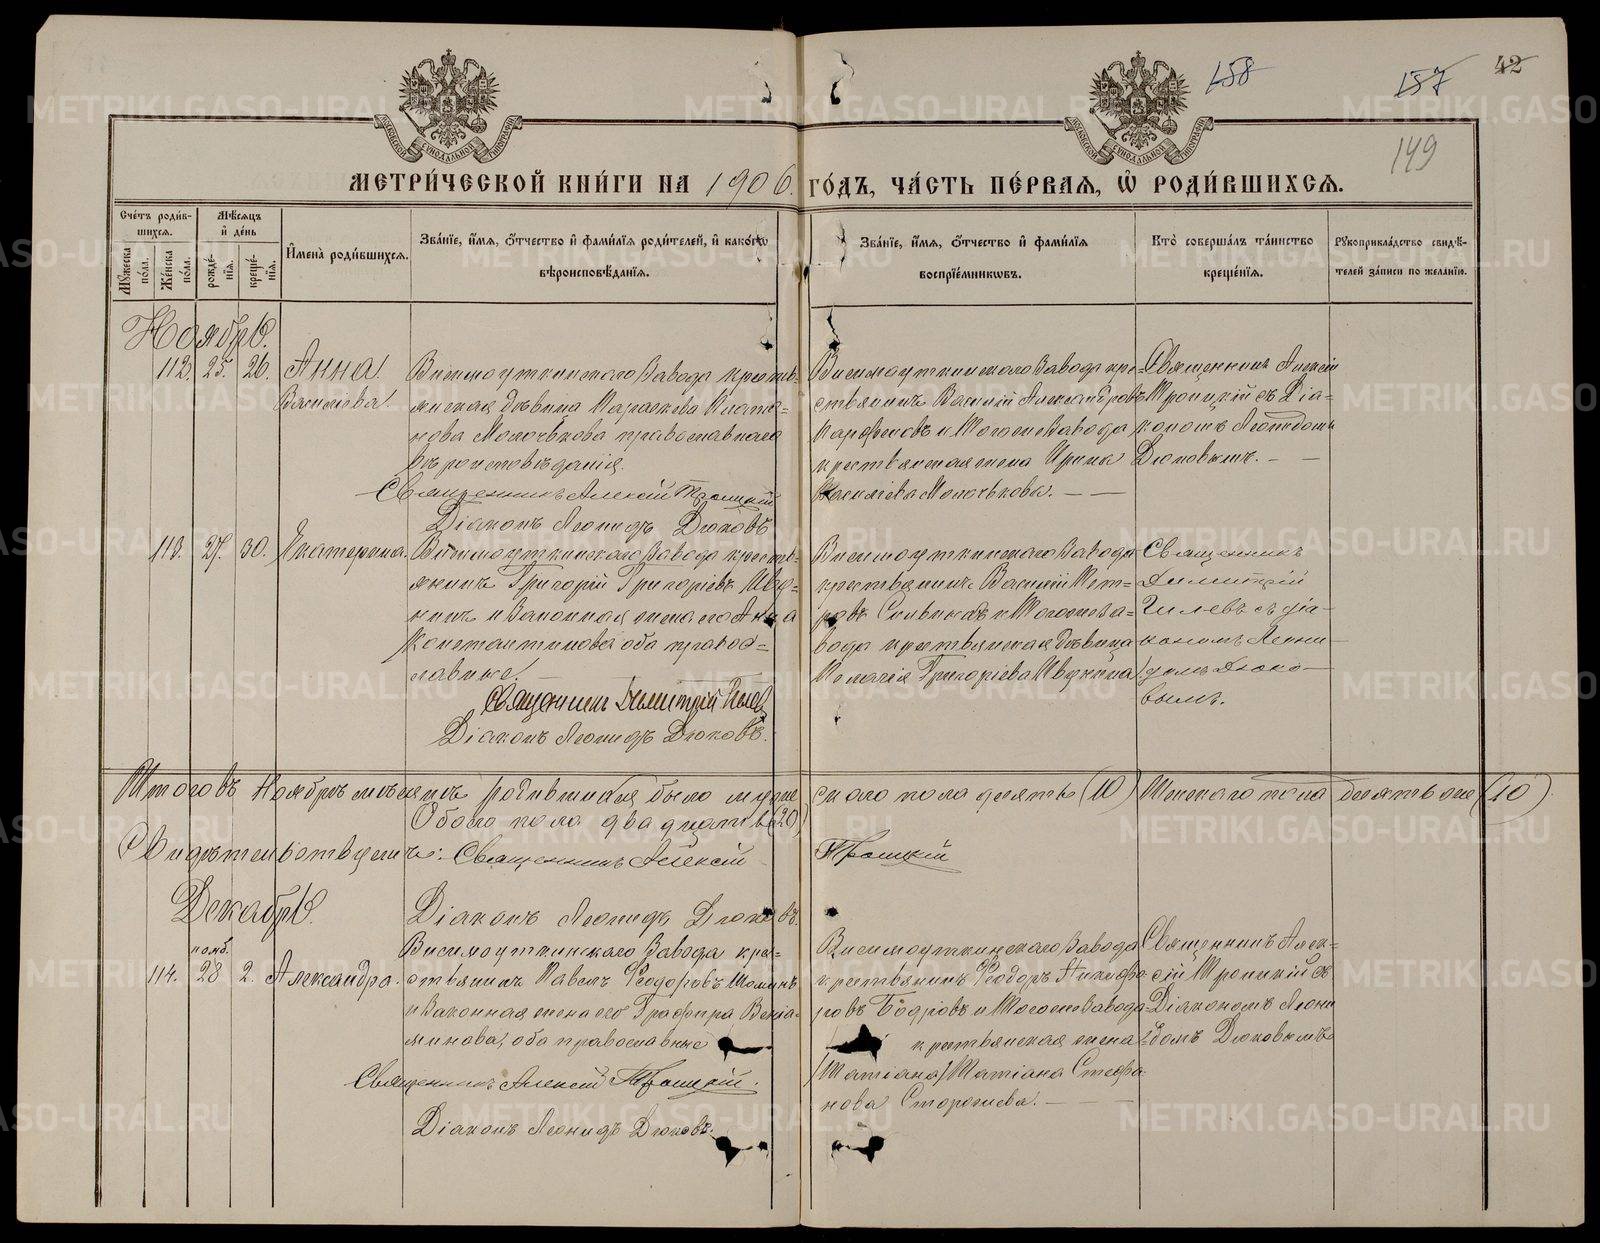 158
157
42
149
МОСКОВСКОЙ СУНОДАЛЬНОЙ ТИПОГРАФІИ
МОСКОВСКОЙ СУНОДАЛЬНОЙ ТИПОГРАФІИ
МЕТРИ́ЧЕСКОЙ КНИ́ГИ НА 1906. ГО́ДЪ, ЧА́СТЬ ПЕ́РВАЯ, Ѡ҆ РОДИ́ВШИХСЯ.
Сче́тъ роди́в-
шихся.
Мꙋжеска по́ла.
Же́нска по́ла.
Мѣ́сяцъ
и҆ де́нь
рожде́-
нїя.
креще́-
нїя.
И҆мена̀ роди́вшихся.
Зва́нїе, и҆́мя, о҆́тчество и҆ фами́лїя роди́телей, и҆ како́гѡ
вѣроисповѣ́данїя.
Зва́нїе, и҆́мя, о҆́тчество и҆ фами́лїя
воспрїе́мникѡвъ.
Кто̀ соверша́лъ та́инство
креще́нїя.
Рꙋкоприкла́дство свидѣ́-
телей за́писи по жела́нїю.
Ноябрь.
112. 25. 26. Анна
Васильева.
Висимоуткинскаго Завода кресть-
янская дѣвица Параскева Плато-
нова Молочкова православнаго
вѣроисповѣданія.
Священникъ Алексій Троицкій
Діаконъ Леонидъ Дюковъ
Висимоуткинскаго Завода кре-
стьянинъ Василій Александровъ
Парфеновъ и Тогоже Завода
крестьянская жена Ирина
Васильева Молочкова.
Священникъ Алексій
Троицкій съ Діа-
кономъ Леонидомъ
Дюковымъ.
113. 27. 30. Екатерина.
Висимоуткинскаго Завода кресть-
янинъ Григорій Григоріевъ
и Законная жена его Анна
Константинова оба право-
славные.
Священникъ Димитрій Гилевъ
Діаконъ Леонидъ Дюковъ.
Висимоуткинскаго Завода
крестьянинъ Василій Пет-
ровъ и Тогоже За-
вода крестьянская дѣвица
Григоріева
Священникъ
Димитрій
Гилевъ съ діа-
кономъ Леони-
домъ Дюко-
вымъ.
Итого въ Ноябрѣ мѣсяцѣ родившихся было мужескаго пола десять (10) Женскаго пола десять (10)
Обоего пола двадцать (20)
Свидѣтельствуемъ: Священникъ Алексій Троицкій
Діаконъ Леонидъ Дюковъ.
Декабрь.
114. нояб. 28 2. Александра.
Висимоуткинскаго Завода кре-
стьянинъ Павелъ Ѳеодоровъ
и Законная жена его Графира Веніа-
минова, оба православные
Священникъ Алексій Троицкій.
Діаконъ Леонидъ Дюковъ.
Висимоуткинскаго Завода
крестьянинъ Ѳеодоръ Никифо-
ровъ Бодровъ и Тогоже Завода
крестьянская жена
/Татіана/ Татіана Стефа-
нова Сторожева.
Священникъ Алек-
сій Троицкій съ
Діакономъ Леони-
домъ Дюковымъ
METRIKI.GASO-URAL.RU